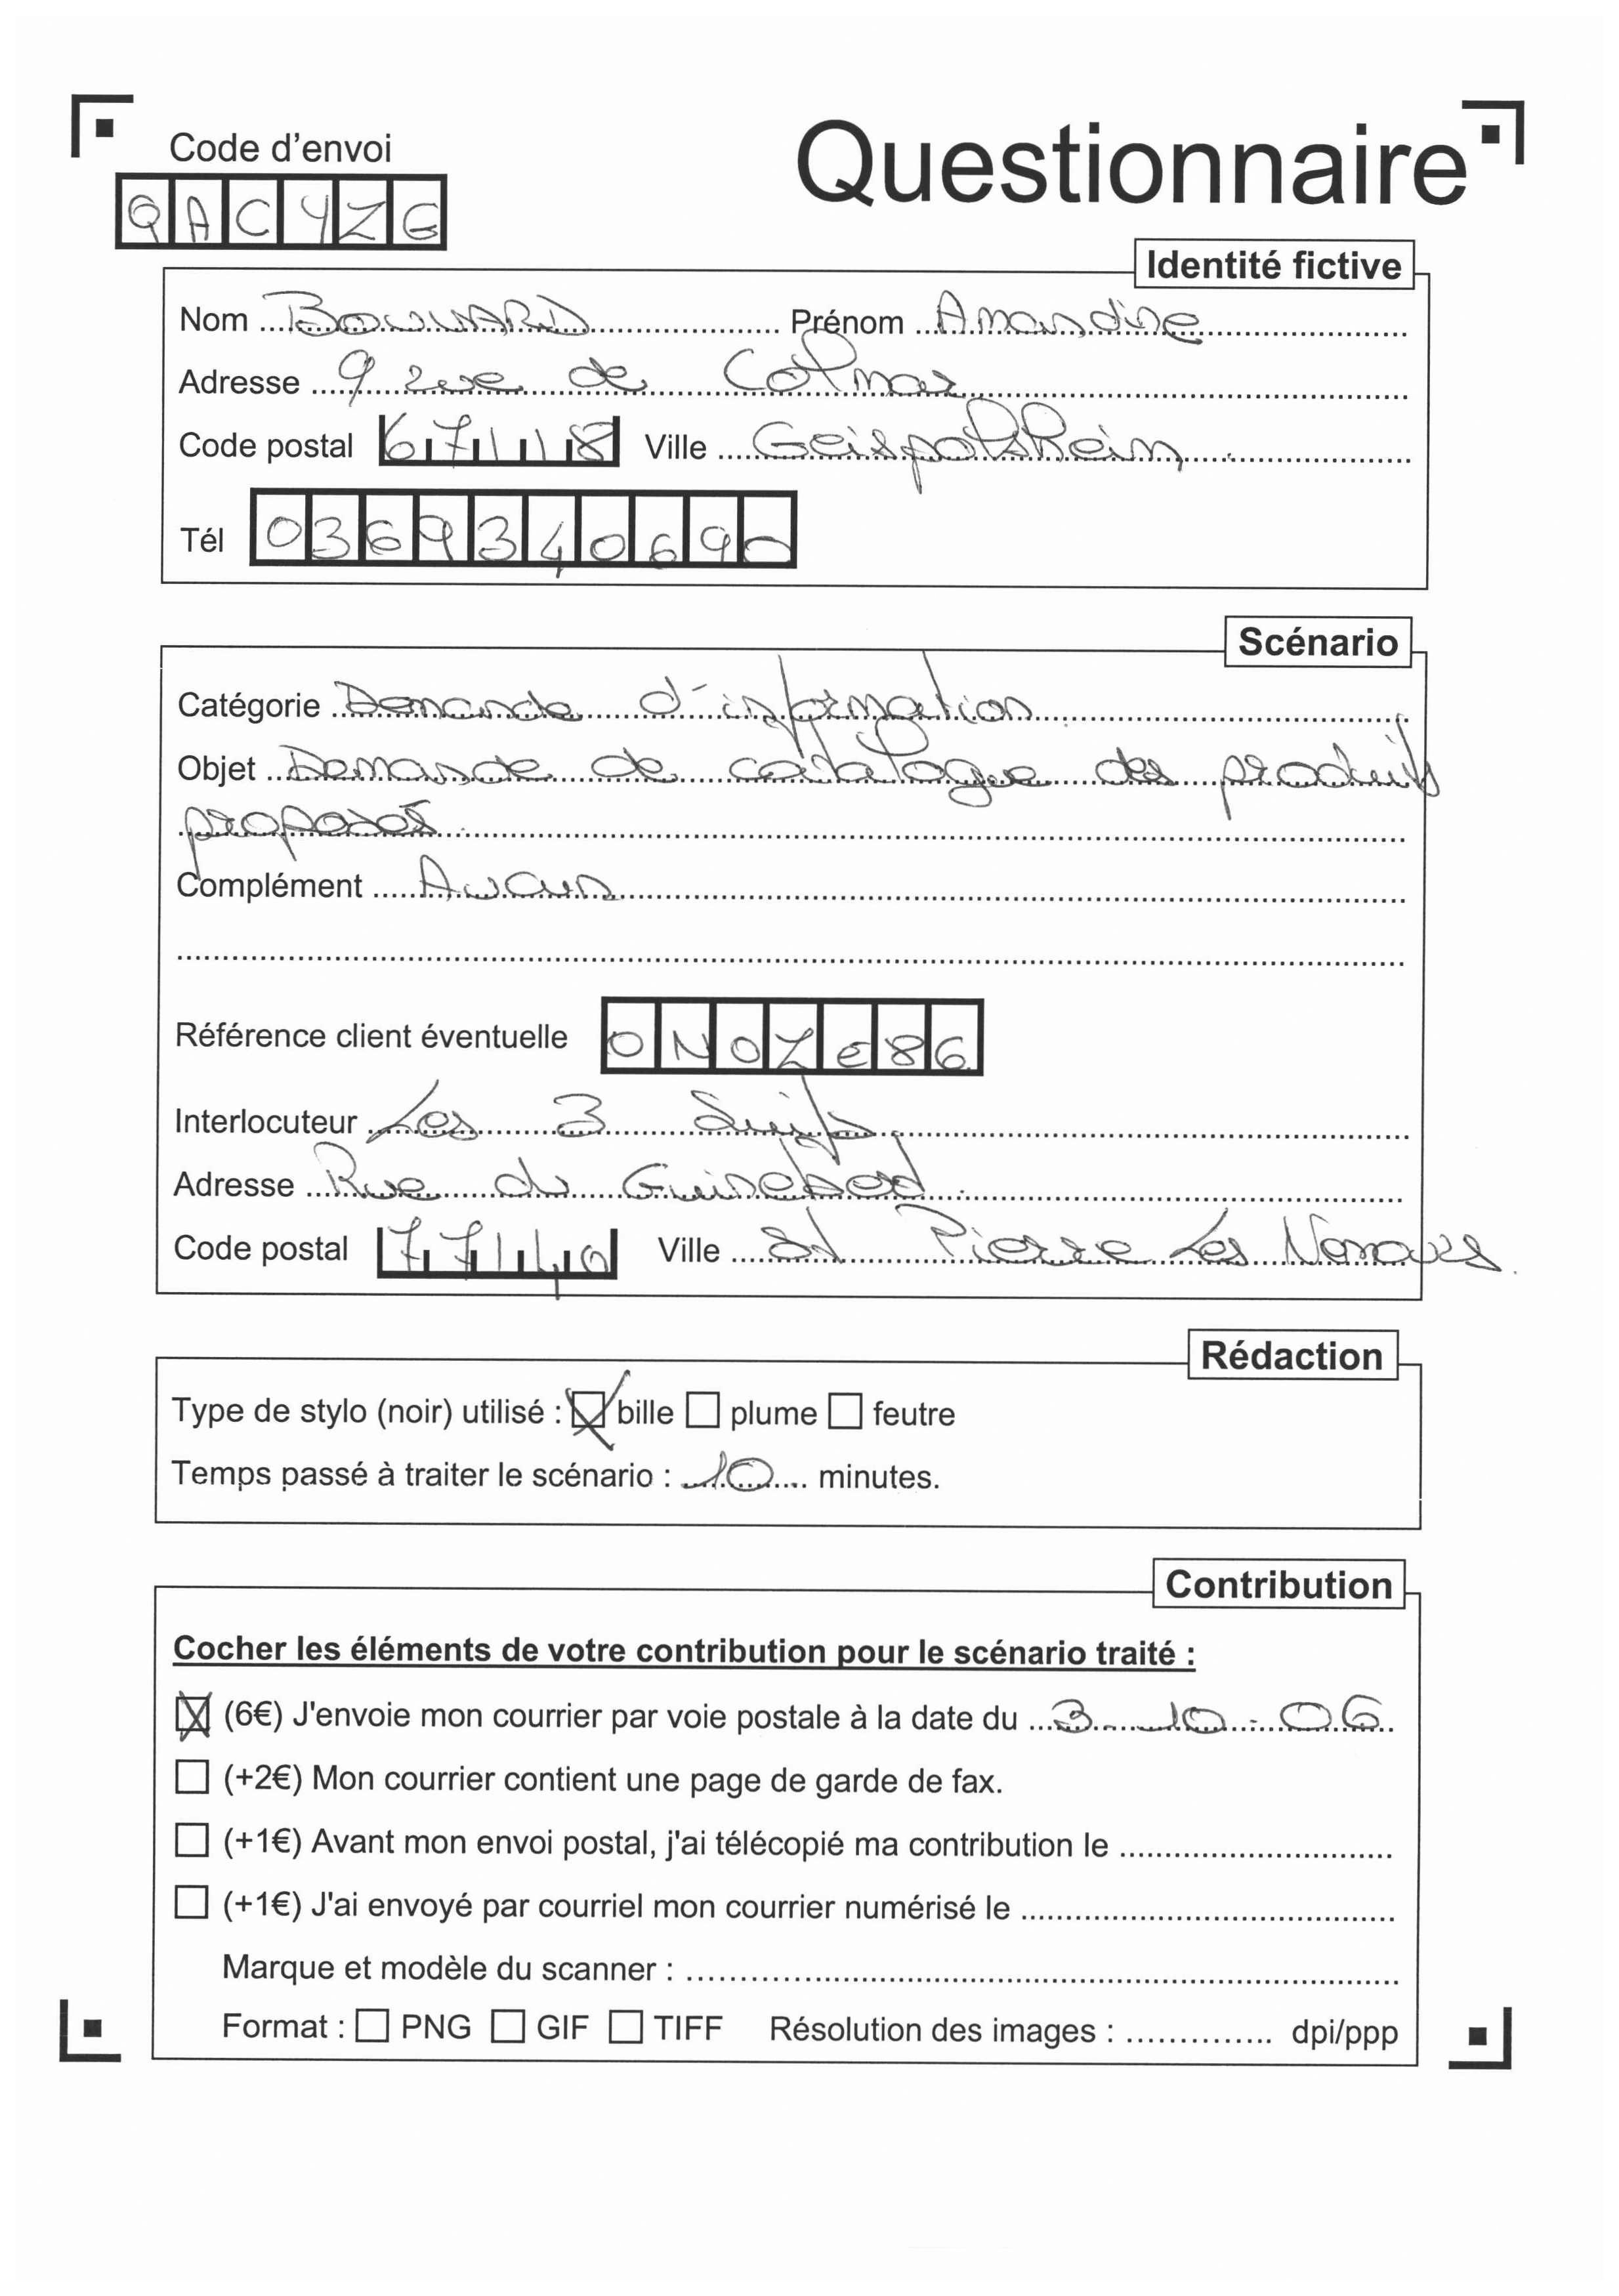 Code d'envoi
Questionnaire
QACYZG
Identité fictive
Nom Prénom Amandine
Adresse 9 rue de Colmar
Code postal 67118 Ville Geispolsheim
Tél 0369340690
Scénario
Catégorie Demande d'information
Objet Demande de catalogue des produits
proposés
Complément Aucun
Référence client éventuelle ONOZE86
Interlocuteur Les 3 Suisses
Adresse Rue du
Code postal 77140 Ville St Pierre Les Nemours
Rédaction
Type de stylo (noir) utilisé : bille plume feutre
Temps passé à traiter le scénario : 10 minutes.
Contribution
Cocher les éléments de votre contribution pour le scénario traité :
(6€) J'envoie mon courrier par voie postale à la date du 3-10-06
(+2€) Mon courrier contient une page de garde de fax.
(+1€) Avant mon envoi postal, j'ai télécopié ma contribution le
(+1€) J'ai envoyé par courriel mon courrier numérisé le
Marque et modèle du scanner :
Format : PNG GIF TIFF Résolution des images : dpi/ppp